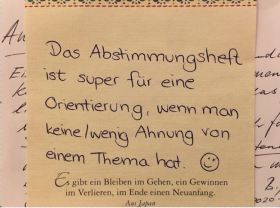 Das Abstimmungsheft
ist super für eine
Orientierung, wenn man
keine/wenig Ahnung von
einem Thema hat. ☺
Es gibt ein Bleiben im Gehen, ein Gewinnen
im Verlieren, im Ende einen Neuanfang.
Aus Japan